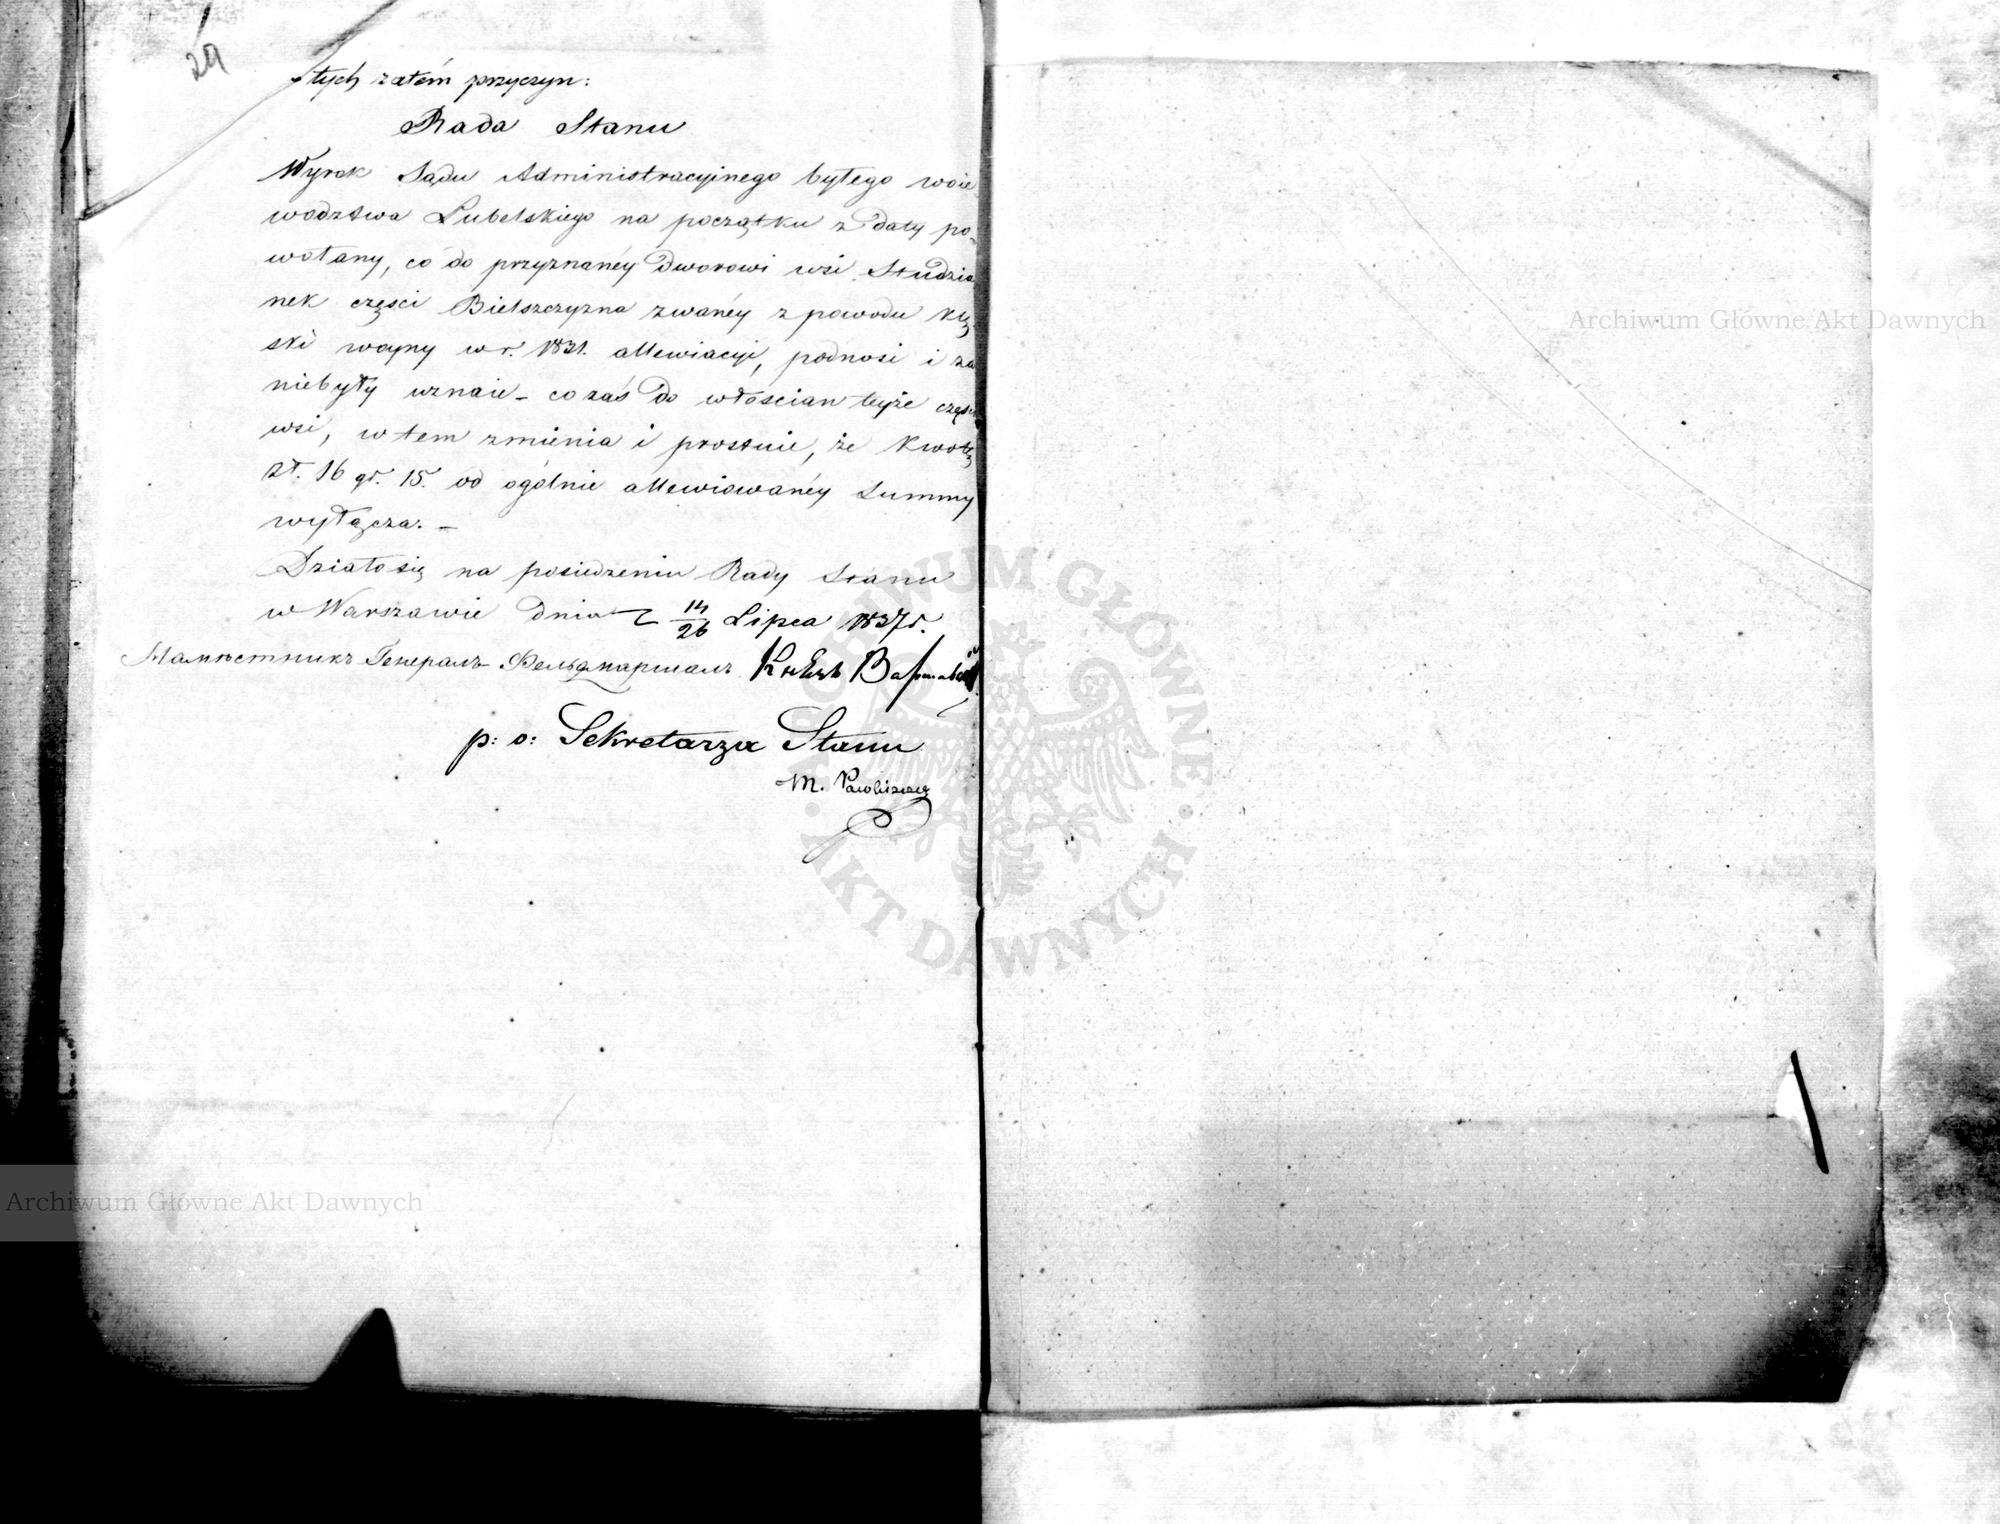 29
z tych zatém przyczyn:
Rada Stanu
Wyrok Sądu Administracyinego byłego woie
wodztwa Lubelskiego na początku z daty po-
wołany, co do przyznanéy dworowi wsi Studzia
nek części Bielszczyzna zwanéy z powodu klę-
ski woyny w r. 1831. allewiacyi, podnosi i za
niebyły uznaie - co zaś do włościan teyże części
wsi, w tem zmienia i prostuie, że kwotę
zł. 16 gr. 15. od ogólnie allewiowanéy Summy
wyłącza. -
Działo się na posiedzeniu Rady Stanu
w Warszawie dnia 14/26 Lipca 1837 r.
Намѣстникъ Генералъ-Фельдмаршалъ Князь Варшавскій
p: o: Sekretarza Stanu
M. Pawliszczew
Archiwum Główne Akt Dawnych
ARCHIWUM GŁÓWNE · AKT DAWNYCH ·
Archiwum Główne Akt Dawnych